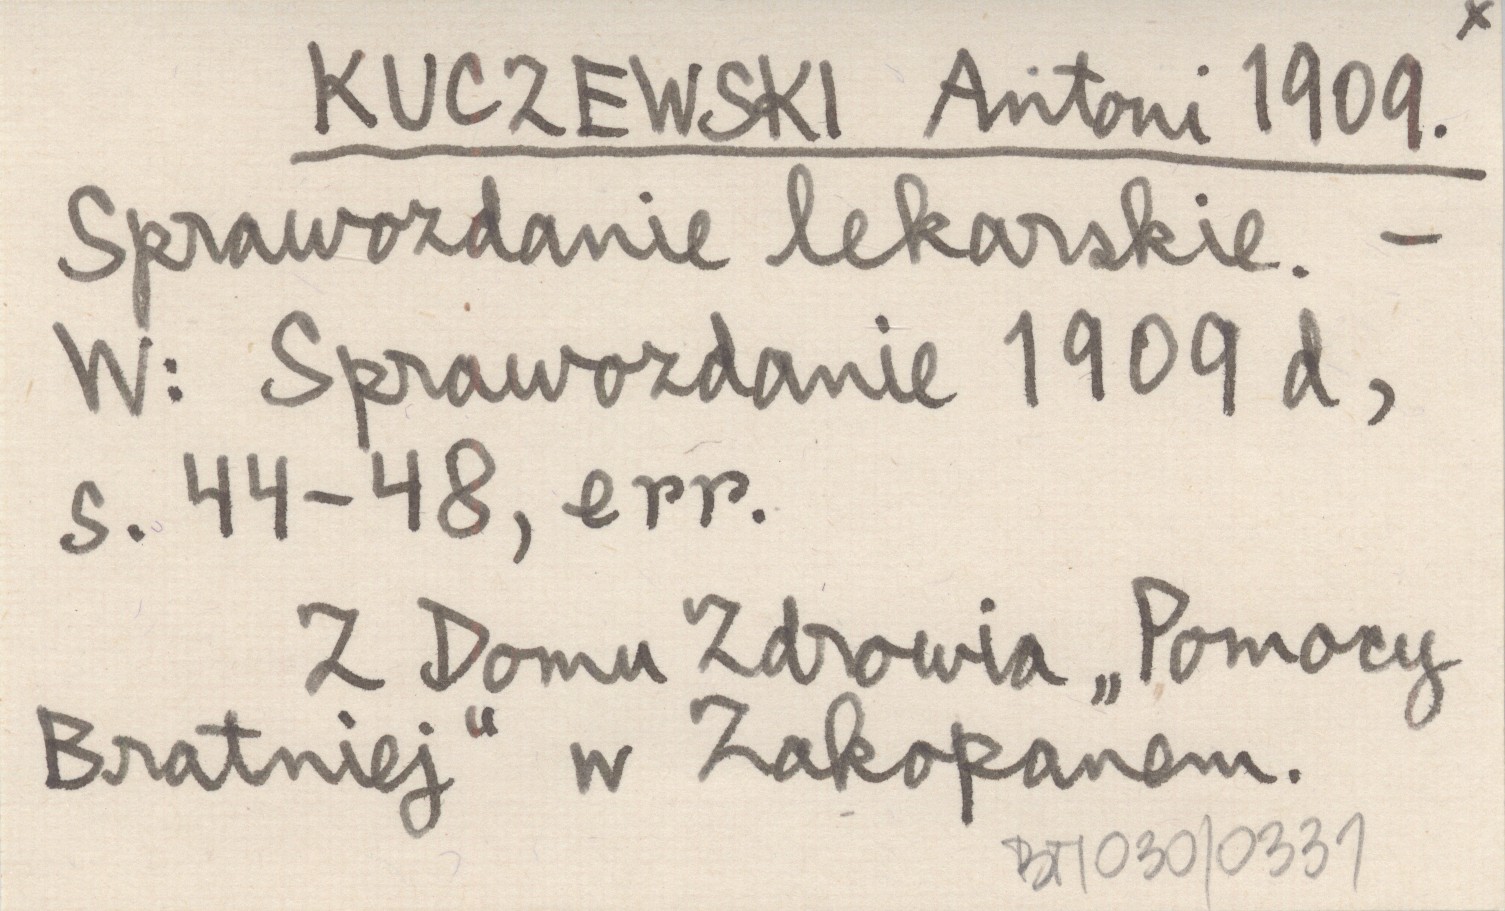 x
KUCZEWSKI Antoni 1909.
Sprawozdanie lekarskie. –
W: Sprawozdanie 1909 d,
s. 44–48, err.
Z Domu Zdrowia „Pomocy
Bratniej“ w Zakopanem.
BT/030/0331